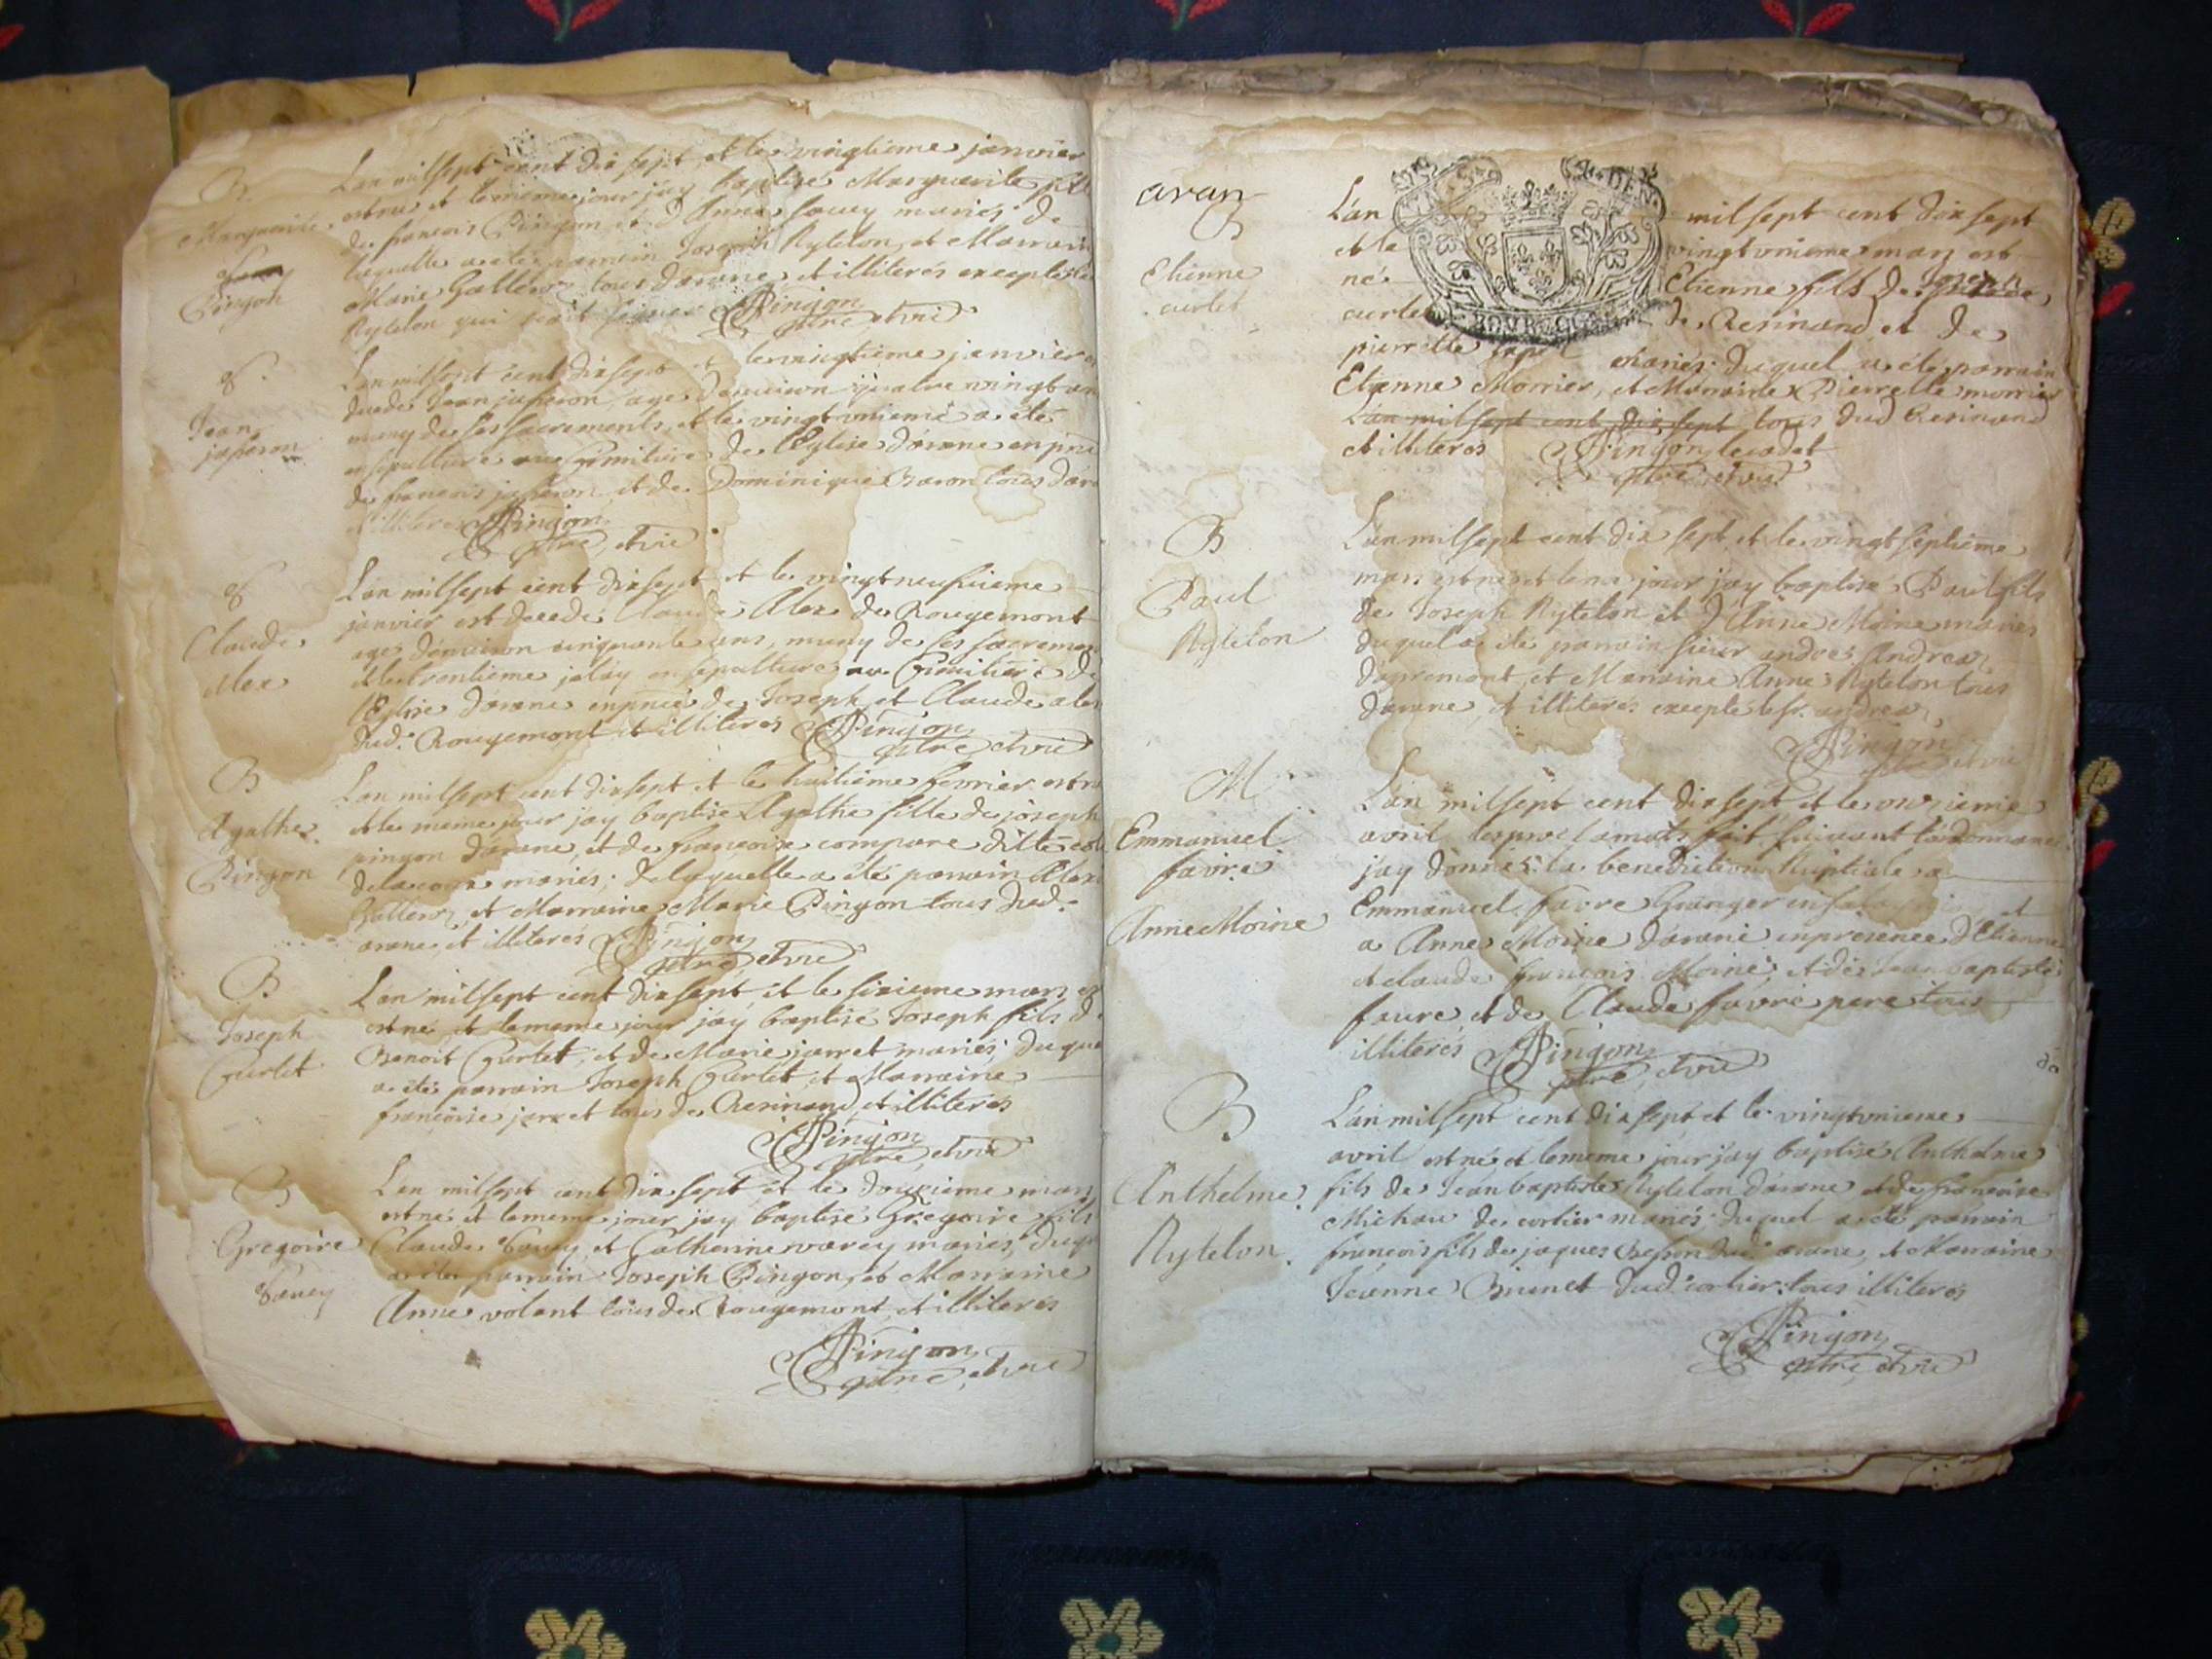 B
Marguerite
Pingon
Lan milsept cent dix sept et le vingtieme janvier
est née et le meme jour jay baptisé Marguerite fille
de francois Pingon et d'Anne savey mariés de
laquelle a été parrain Joseph Rytelon, et Marraine
Marie Gallien tous darane, et illiterés excepté
Rytelon qui scait signer Pingon
ptre et vic
S
Jean
jasseron
Lan milsept cent dix sept et le vingtieme janvier
decede Jean jasseron, agé denviron quatre vingt ans
muny de ses sacrements, et le vingtunieme a été
ensepulturé au Cimitiere de l'Eglise d'arane en pnce
de francois jasseron et de Dominique Baron tous
illiterés Pingon
ptre, et vic
S
Claude
Alex
Lan milsept cent dix sept et le vingt neufuieme
janvier est decedé Claude Alex de Rougemont
agé denviron cinquante ans, muny de ses sacremens
et le trentieme je lay ensepulturé au Cimitiere de
l'Eglise d'arane en pnce de Joseph et Claude alex
dud. Rougemont et illiterés Pingon
ptre et vic
B
Agathe
Pingon
Lan milsept cent dix sept et le huitieme fevrier est née
et le meme jour jay baptisé Agathe fille de joseph
pingon d'arane, et de francoise compare ditte
delacour mariés; de laquelle a été parrain
Gallien, et Marraine Marie Pingon tous dud.
arane, et illiterés Pingon
ptre et vic
B
Joseph
Curlet
Lan milsept cent dix sept et le sixieme mars
est né, et le meme jour jay baptisé Joseph fils de
Benoit Curlet, et de Marie jarret mariés; duquel
a été parrain Joseph Curlet, et Marraine
francoise jarret tous de Resinand et illiterés
Pingon
ptre, et vic
B
Gregoire
Savey
Lan milsept cent dix sept et le douzieme mars
est né et le meme jour jay baptisé Gregoire fils
Claude Savey, et Catherine varey mariés, duquel
a été parrain Joseph Pingon, et Marraine
Anne volant tous de Rougemont, et illiterés
Pingon
ptre, et vic
aran
B
Etienne
curlet
L'an mil sept cent dix sept
et le vingtunieme mars est
né Etienne fils de Joseph
curlet de Resinand et de
pierrette mariés: duquel a été parrain
Etienne Morrier, et Marraine Pierrette morrier
Lan milsept cent dix sept tous dud Resinand
et illiterés Pingon le cadet
ptre et vic
B
Paul
Rytelon
L'an milsept cent dix sept et le vingt septieme
mars est né et le jour jay baptisé Paul fils
de Joseph Rytelon et d'Anne Moine mariés
duquel a été parrain sieur andré Andrea
dapremont, et Marraine Anne Rytelon tous
darane, et illiterés excepté le sr. andrea
Pingon
ptre et vic
M
Emmanuel
favre
Anne Moine
L'an milsept cent dix sept, et le onzieme
avril les proclamats fait suivant l'ordonnance
jay donné la benediction Nuptiale a
Emmanuel favre Granger et
a Anne Moine d'arane en presence d'Etienne
et claude francois Moine, et de Jean baptiste
favre, et de Claude favre pere tous
illiterés Pingon
ptre, et vic
B
Anthelme
Rytelon
L'an milsept cent dix sept et le vingtunieme
avril est né et le meme jour jay baptisé Anthelme
fils de Jean baptiste Rytelon d'arane et de francoise
Michau de corlier mariés; duquel a été parrain
francois fils de jaques Besson dud. arane, et Marraine
Jeanne Brunet dud. corlier: tous illiterés
Pingon
ptre et vic